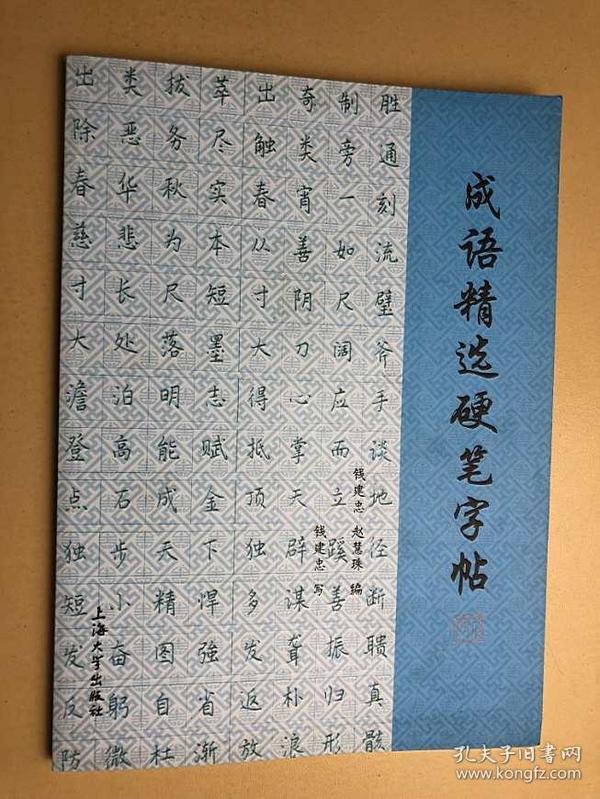 成语精选硬笔字帖
出类拔萃出奇制胜
除恶务尽触类旁通
春华秋实春宵一刻
慈悲为本从善如流
寸长尺短寸阴尺璧
大处落墨大刀阔斧
澹泊明志得心应手
登高能赋抵掌而谈
点石成金顶天立地
独步天下独辟蹊径
短小精悍多谋善断
发奋图强发聋振聩
反躬自省返朴归真
防微杜渐放浪形骸
钱建忠 赵慧珠 编
钱建忠 写
上海大学出版社
孔夫子旧书网
www.kongfz.com